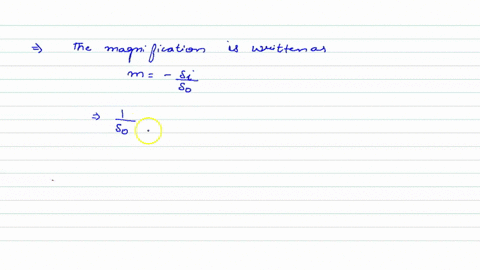 ⇒ The magnification is written as
m = - Si/S0
⇒ 1/S0